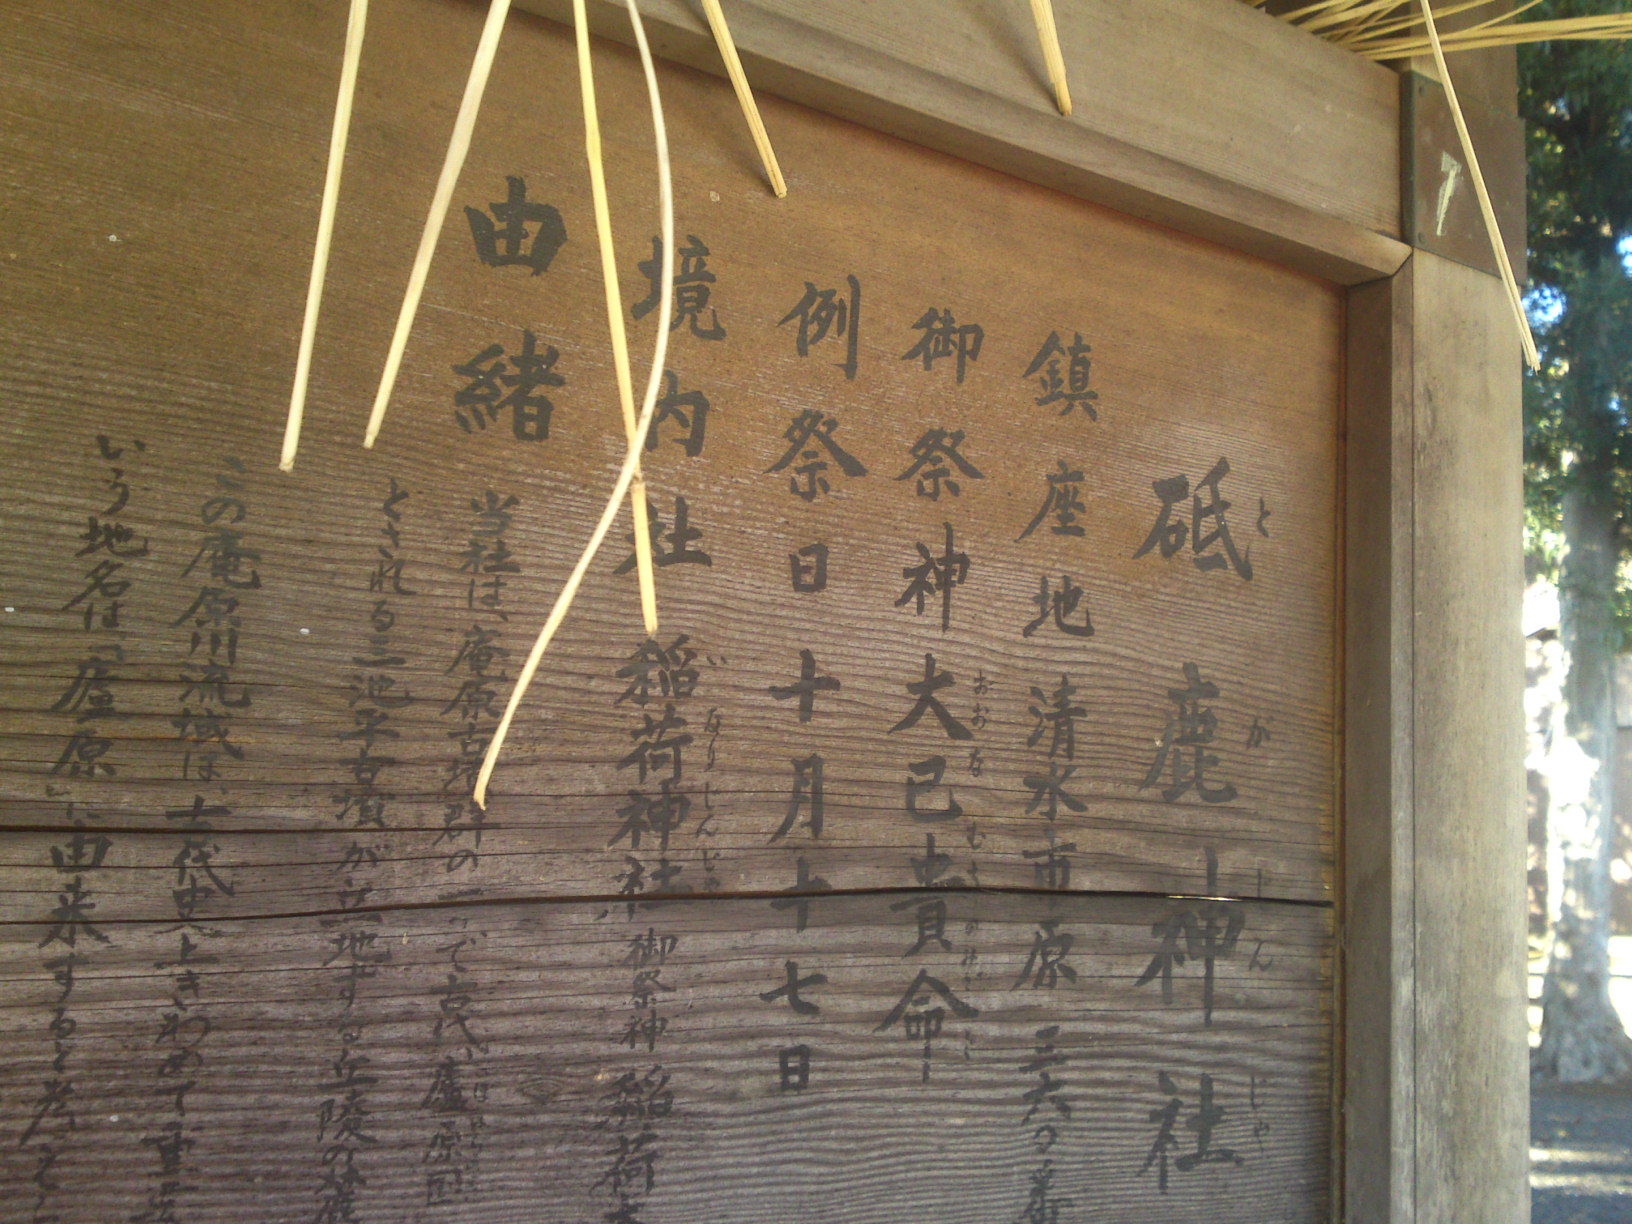 砥鹿神社
とがじんじゃ
鎮座地 清水市原 三六〇番
御祭神 大己貴命
おおなむ
例祭日 十月十七日
境内社 稲荷神社 御祭神 稲荷大
いなりじんじゃ
由緒
当社は、庵原古墳群の一つで古代、廬原国
とされる三池平古墳が立地する丘陵の外
この庵原川流域は、古代史上きわめて重
いう地名は「廬原」に由来すると考え